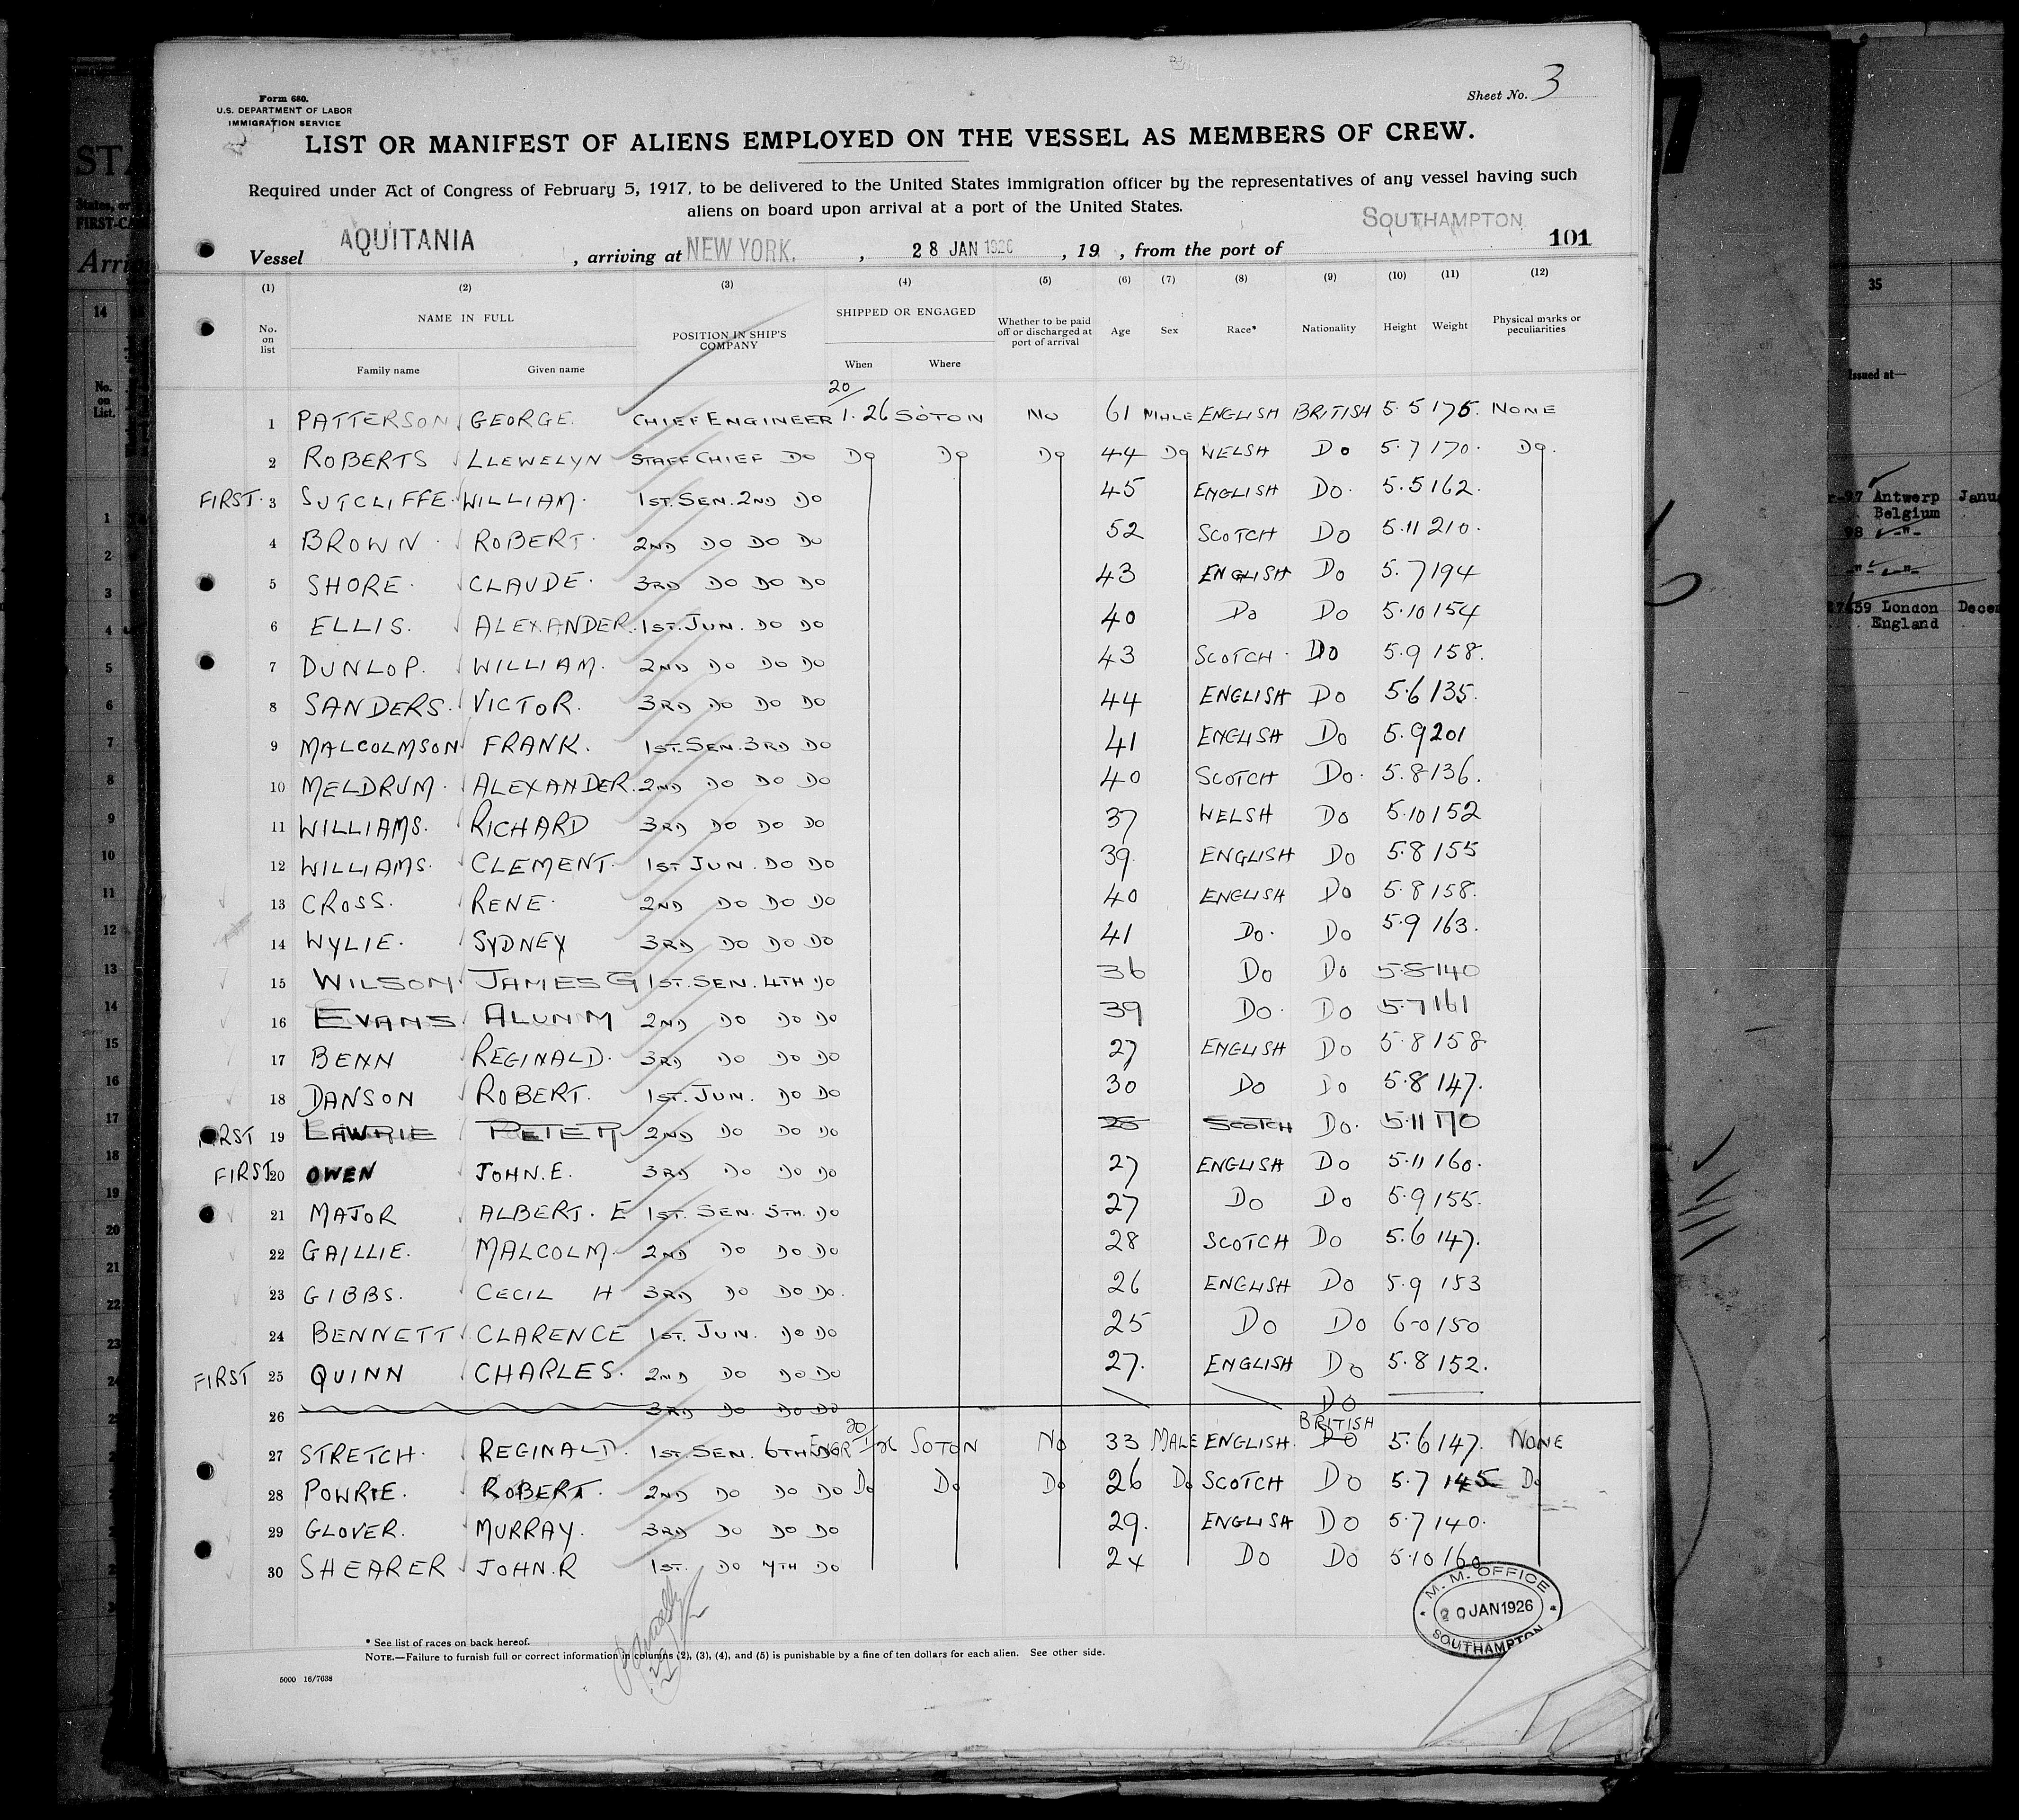 Form 680.
U.S. DEPARTMENT OF LABOR
IMMIGRATION SERVICE
Sheet No. 3
LIST OR MANIFEST OF ALIENS EMPLOYED ON THE VESSEL AS MEMBERS OF CREW.
Required under Act of Congress of February 5, 1917, to be delivered to the United States immigration officer by the representatives of any vessel having such
aliens on board upon arrival at a port of the United States.
Vessel AQUITANIA , arriving at NEW YORK. , 28 JAN 1926 , 19 , from the port of SOUTHAMPTON 101
(1) (2) (3) (4) (5) (6) (7) (8) (9) (10) (11) (12)
No. on list NAME IN FULL Family name Given name POSITION IN SHIP'S COMPANY SHIPPED OR ENGAGED When Where Whether to be paid off or discharged at port of arrival Age Sex Race* Nationality Height Weight Physical marks or peculiarities
1 PATTERSON GEORGE. CHIEF ENGINEER 20/1.26 SOTON No 61 MALE ENGLISH BRITISH 5.5 175. NONE
2 ROBERTS LLEWELYN STAFF CHIEF DO DO DO DO 44 DO WELSH DO 5.7 170. DO.
FIRST. 3 SUTCLIFFE. WILLIAM. 1ST. SEN. 2ND DO 45 ENGLISH DO. 5.5 162.
4 BROWN. ROBERT. 2ND DO DO DO 52 SCOTCH DO 5.11 210.
5 SHORE. CLAUDE. 3RD DO DO DO 43 ENGLISH DO 5.7 194
6 ELLIS. ALEXANDER. 1ST. JUN. DO DO 40 DO DO 5.10 154
7 DUNLOP. WILLIAM. 2ND DO DO DO 43 SCOTCH. DO 5.9 158.
8 SANDERS. VICTOR. 3RD DO DO DO 44 ENGLISH DO 5.6 135.
9 MALCOLMSON FRANK. 1ST. SEN. 3RD DO 41 ENGLISH DO 5.9 201
10 MELDRUM. ALEXANDER. 2ND DO DO DO 40 SCOTCH DO. 5.8 136.
11 WILLIAMS. RICHARD 3RD DO DO DO 37 WELSH DO 5.10 152
12 WILLIAMS. CLEMENT. 1ST. JUN. DO DO 39. ENGLISH DO 5.8 155
13 CROSS. RENE. 2ND DO DO DO 40 ENGLISH DO 5.8 158.
14 WYLIE. SYDNEY 3RD DO DO DO 41 DO. DO 5.9 163.
15 WILSON JAMES G 1ST. SEN. 4TH DO 36 DO DO 5.8 140
16 EVANS ALUN M 2ND DO DO DO 39 DO. DO 5.7 161
17 BENN REGINALD. 3RD DO DO DO 27 ENGLISH DO 5.8 158
18 DANSON ROBERT. 1ST. JUN. DO DO 30 DO DO 5.8 147.
FIRST 19 LAWRIE PETER 2ND DO DO DO SCOTCH DO. 5.11 170
FIRST 20 OWEN JOHN. E. 3RD DO DO DO 27 ENGLISH DO 5.11 160.
21 MAJOR ALBERT. E 1ST. SEN. 5TH. DO 27 DO DO 5.9 155.
22 GAILLIE. MALCOLM. 2ND DO DO DO 28 SCOTCH DO 5.6 147.
23 GIBBS. CECIL H 3RD DO DO DO. 26 ENGLISH DO 5.9 153
24 BENNETT CLARENCE 1ST. JUN. DO DO 25 DO DO 6-0 150
FIRST 25 QUINN CHARLES. 2ND DO DO DO 27. ENGLISH DO 5.8 152.
26 3RD DO DO DO DO
27 STRETCH. REGINALD. 1ST. SEN. 6TH ENGR 20/1/26 SOTON No 33 MALE ENGLISH. BRITISH DO 5.6 147. NONE
28 POWRIE. ROBERT. 2ND DO DO DO DO DO DO 26 DO SCOTCH DO 5.7 145 DO
29 GLOVER. MURRAY. 3RD DO DO DO 29. ENGLISH DO 5.7 140.
30 SHEARER JOHN. R 1ST. DO 7TH DO 24 DO DO 5.10 160
M. M. OFFICE
20 JAN 1926
SOUTHAMPTON
* See list of races on back hereof.
NOTE.—Failure to furnish full or correct information in columns (2), (3), (4), and (5) is punishable by a fine of ten dollars for each alien. See other side.
5000 16/7638
STA
States, or
FIRST-CA
Arri
14
No. on List.
35
Issued at—
97 Antwerp Janu
Belgium
98 -"-
-"- -"-
London Decem
England
7